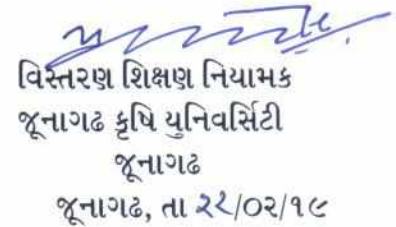 વિસ્તરણ શિક્ષણ નિયામક
જૂનાગઢ કૃષિ યુનિવર્સિટી
જૂનાગઢ
જૂનાગઢ, તા ૨૨/૦૨/૧૯